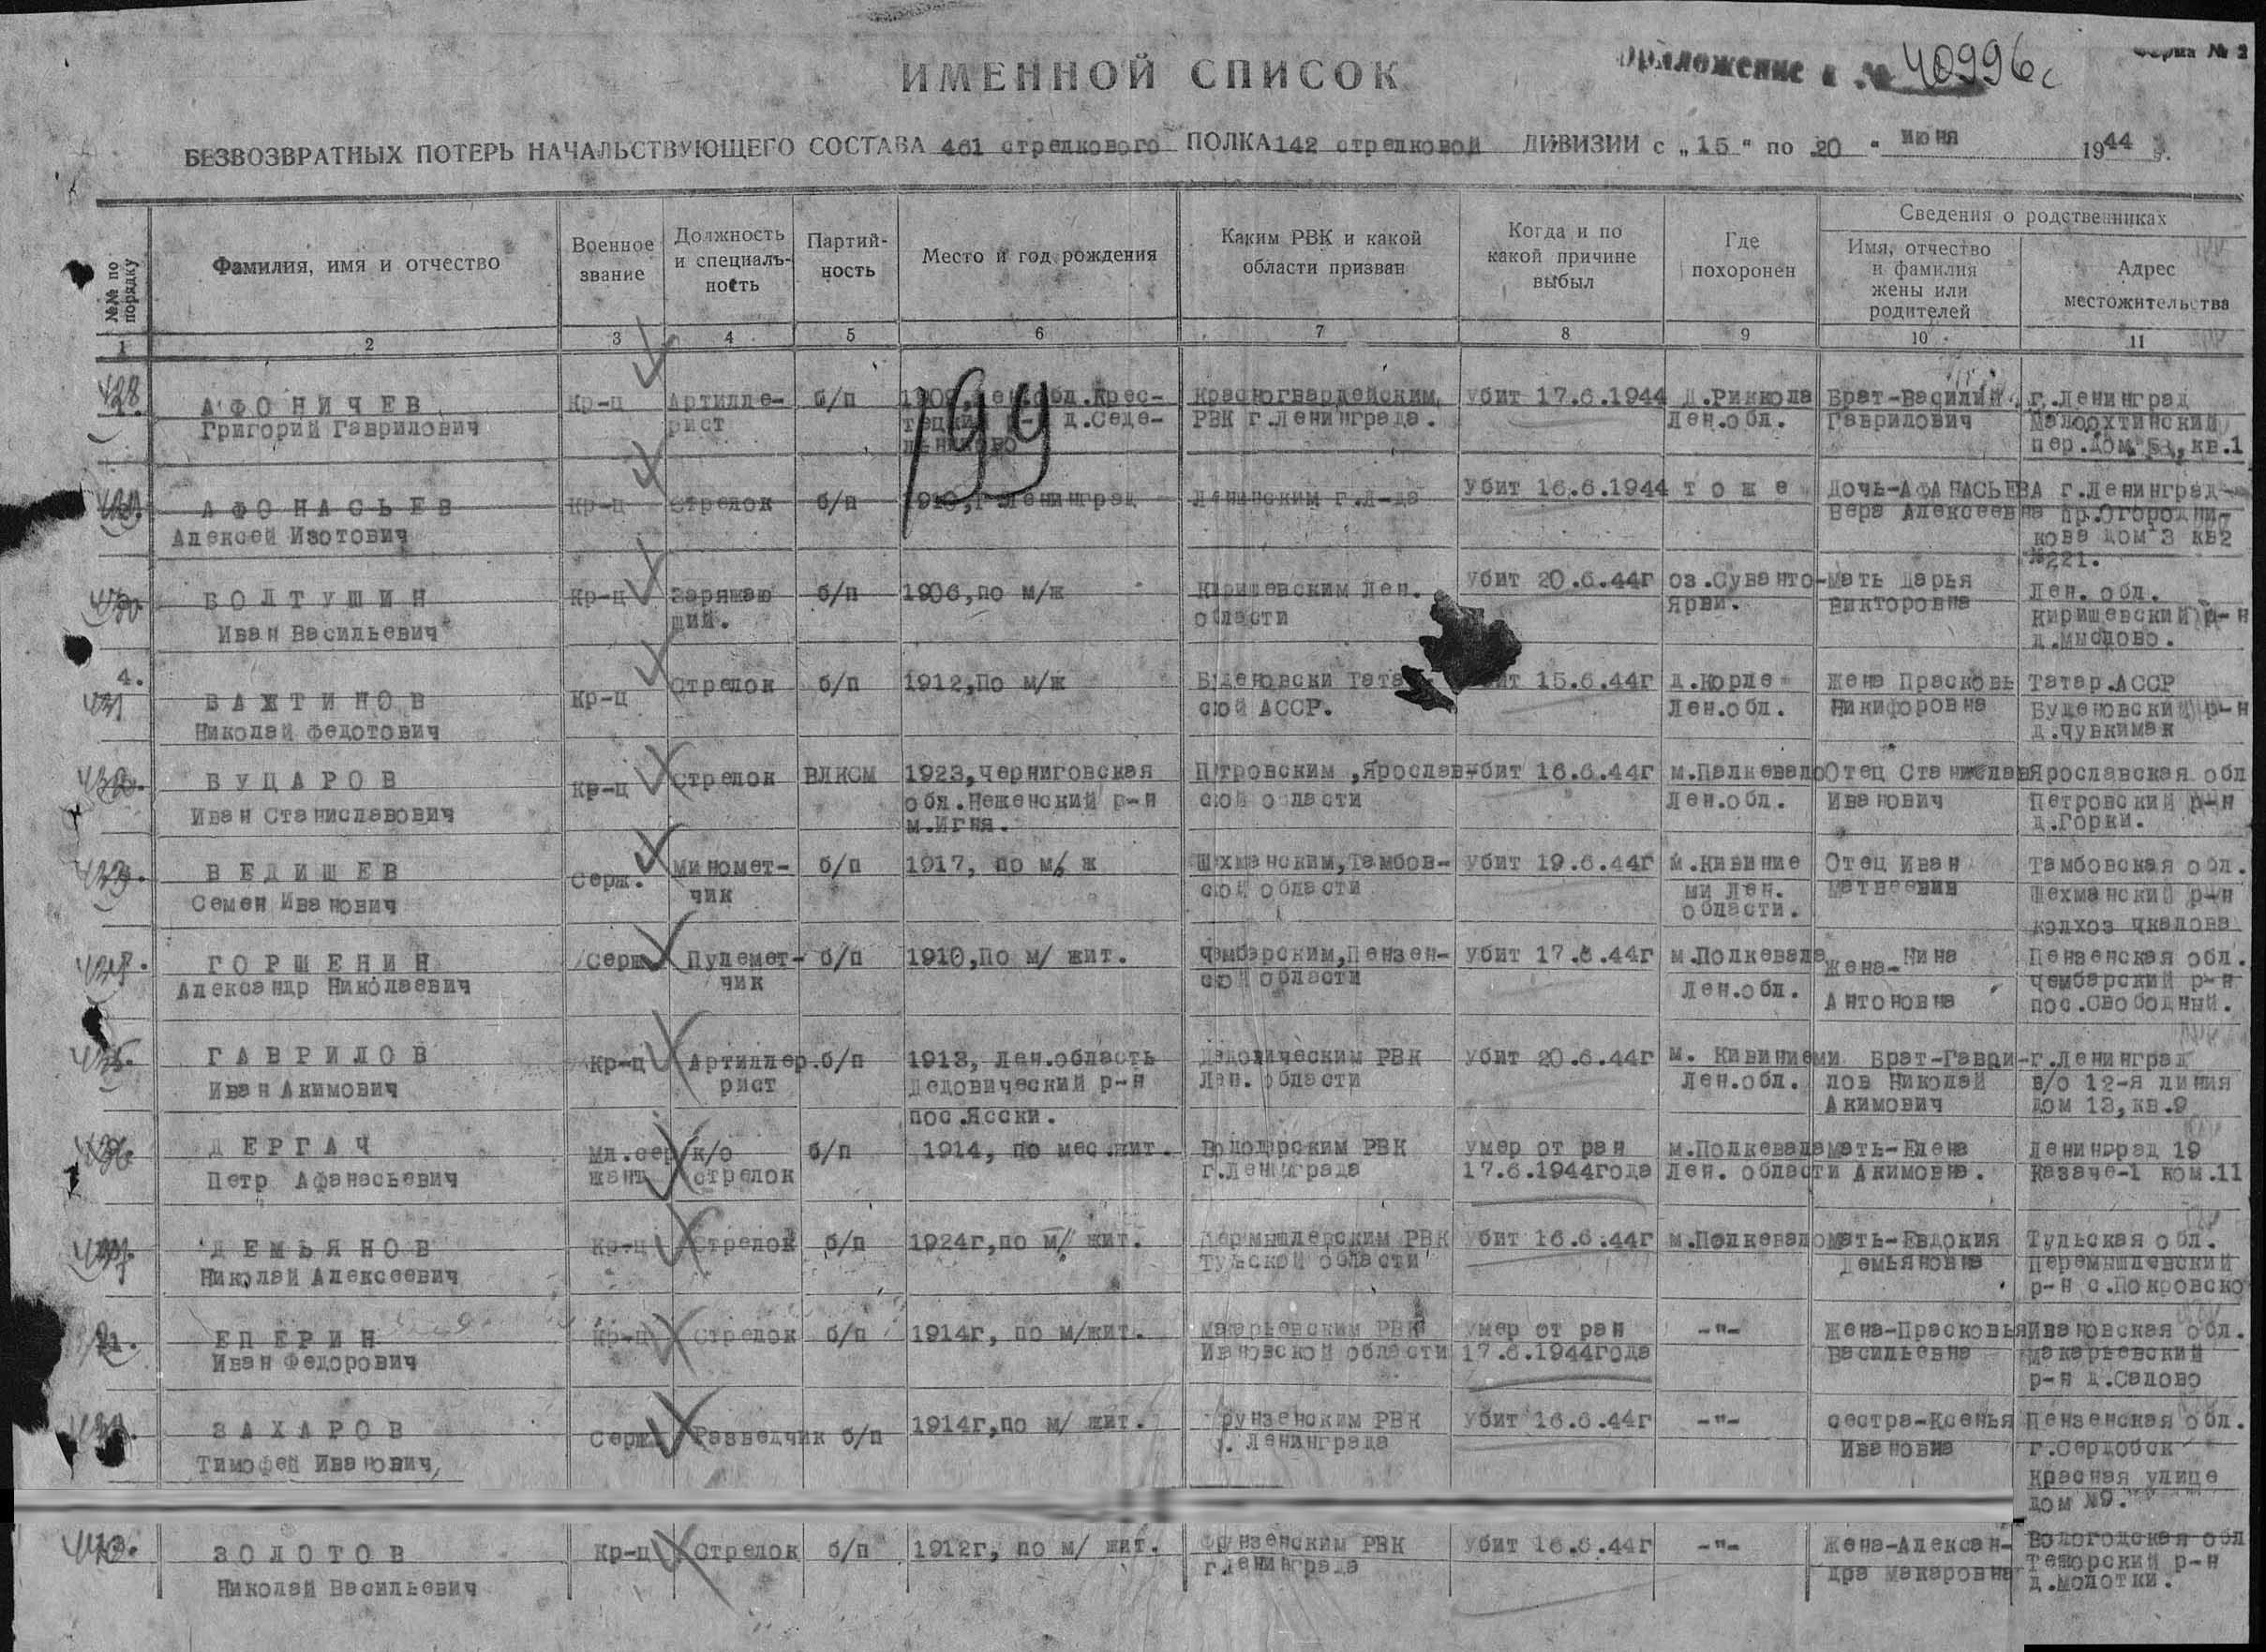 ИМЕННОЙ СПИСОК
Приложение к № 40996с
Форма № 2
БЕЗВОЗВРАТНЫХ ПОТЕРЬ НАЧАЛЬСТВУЮЩЕГО СОСТАВА 461 стрелкового ПОЛКА 142 стрелковой ДИВИЗИИ с „15" по 20 " июня 1944 г.
№№ по порядку
Фамилия, имя и отчество
Военное звание
Должность и специальность
Партийность
Место и год рождения
Каким РВК и какой области призван
Когда и по какой причине выбыл
Где похоронен
Сведения о родственниках
Имя, отчество и фамилия жены или родителей
Адрес местожительства
1 2 3 4 5 6 7 8 9 10 11
199
428 1. АФОНИЧЕВ Кр-ц Артилле- б/п Красногвардейским Убит 17.6.1944 Брат-Василий г.Ленинград
Григорий Гаврилович рист д.Седе- РВК г.Ленинграда. Лен.обл. Гаврилович Малоохтинский
пер.дом кв.1
АФОНАСЬЕВ Кр-ц Стрелок б/п 1910,г.Ленинград Ленинским г.Л-да Убит 16.6.1944 т о ж е Дочь-АФАНАСЬЕВА г.Ленинград-
Алексей Изотович Вера Алексеевна пр.Огородни-
кова дом 3 кв2
№221.
БОЛТУШИН Кр-ц Заряжаю б/п 1906,по м/ж Киришевским Лен. Убит 20.6.44г оз.Суванто- Мать Дарья Лен. обл.
Иван Васильевич щий. области Ярви. Викторовна Киришевский р-н
д.Мыслово.
4. ВАЖТИНОВ Кр-ц Стрелок б/п 1912,По м/ж Буденовски Тата 15.6.44г Жена Прасковь Татар.АССР
431 Николай Федотович ской АССР. Лен.обл. Никифоровна Буденовский р-н
д.Чувкимак
БУЦАРОВ Кр-ц Стрелок ВЛКСМ 1923,Черниговская Петровским,Ярослав- Убит 16.6.44г м.Палкевало Отец Станислав Ярославская обл
Иван Станиславович обл.Неженский р-н ской области Лен.обл. Иванович Петровский р-н
м.Игня. д.Горки.
ВЕДИШЕВ Серж. Миномет- б/п 1917, по м/ж Шехманским,Тамбов- Убит 19.6.44г м.Кивиние Отец Иван Тамбовская обл.
Семен Иванович чик ской области ми Лен. Матвеевич Шехманский р-н
области. колхоз Чкалова
ГОРШЕНИН Серж Пулемет- б/п 1910,По м/ жит. Чембарским,Пензен- Убит 17.6.44г м.Полкевала Жена-Нина Пензенская обл.
Александр Николаевич чик ской области Лен.обл. Антоновна Чембарский р-н
пос.Свободный.
ГАВРИЛОВ Кр-ц Артиллер. б/п 1913, Лен.область Дедовическим РВК Убит 20.6.44г м. Кивиниеми Брат-Гаври- г.Ленинград
Иван Акимович рист Дедовический р-н Лен. области Лен.обл. лов Николай в/о 12-я линия
пос.Ясски. Акимович дом 13,кв.9
ДЕРГАЧ Мл.сер к/о б/п 1914, по мес.жит. Володарским РВК Умер от ран м.Полкевала мать-Елена Ленинград 19
Петр Афанасьевич жант стрелок г.Ленинграда 17.6.1944года Лен. области Акимовна. Казаче-1 ком.11
ДЕМЬЯНОВ Кр-ц Стрелок б/п 1924г,по м/ жит. Перемышлерским РВК Убит 16.6.44г м.Полкевало мать-Евдокия Тульская обл.
Николай Алексеевич Тульской области Демьяновна Перемышлевский
р-н с.Покровско
ЕПЕРИН Кр-ц Стрелок б/п 1914г, по м/жит. Макарьевским РВК Умер от ран -"- Жена-Прасковья Ивановская обл.
Иван Федорович Ивановской области 17.6.1944года Васильевна Макарьевский
р-н д.Салово
ЗАХАРОВ Серж Разведчик б/п 1914г,по м/ жит. Фрунзенским РВК Убит 16.6.44г -"- сестра-Ксенья Пензенская обл.
Тимофей Иванович, г. Ленинграда Ивановна г.Сердобск
Красная улице
дом №9.
ЗОЛОТОВ Кр-ц Стрелок б/п 1912г, по м/ жит. Фрунзенским РВК Убит 16.6.44г -"- Жена-Алексан- Вологодская обл
Николай Васильевич г.Ленинграда дра Макаровна р-н
д.Молотки.